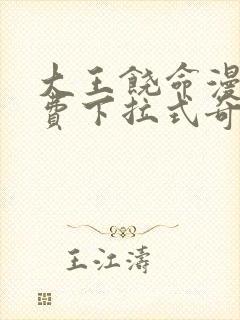 大王饶命漫
费下拉式奇
王江涛